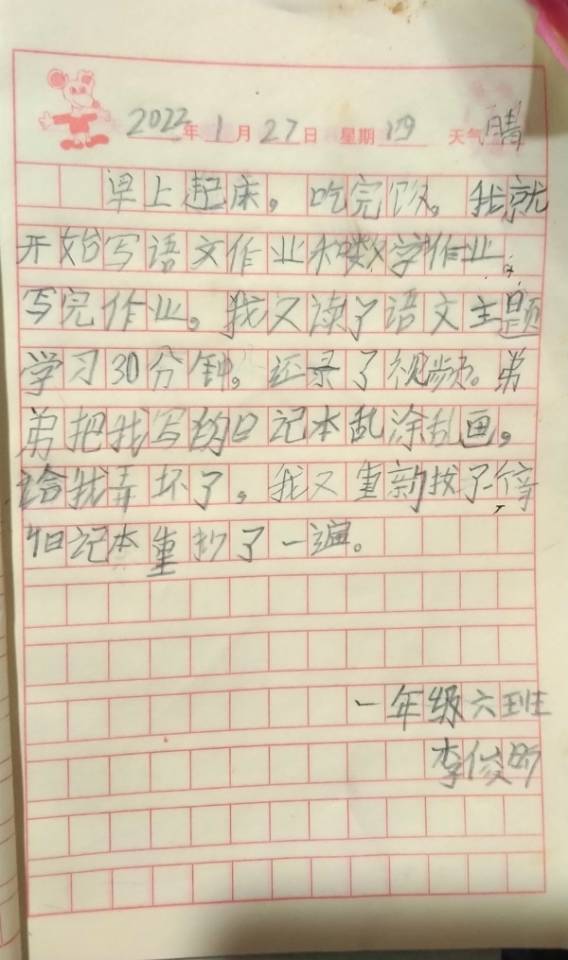 2022年1月27日 星期四 天气晴
早上起床。吃完饭。我就
开始写语文作业和数学作业。
写完作业。我又读了语文主题
学习30分钟。还录了视频。弟
弟把我写的日记本乱涂乱画。
给我弄坏了。我又重新找了一个
旧记本重抄了一遍。
一年级六班
李俊昕